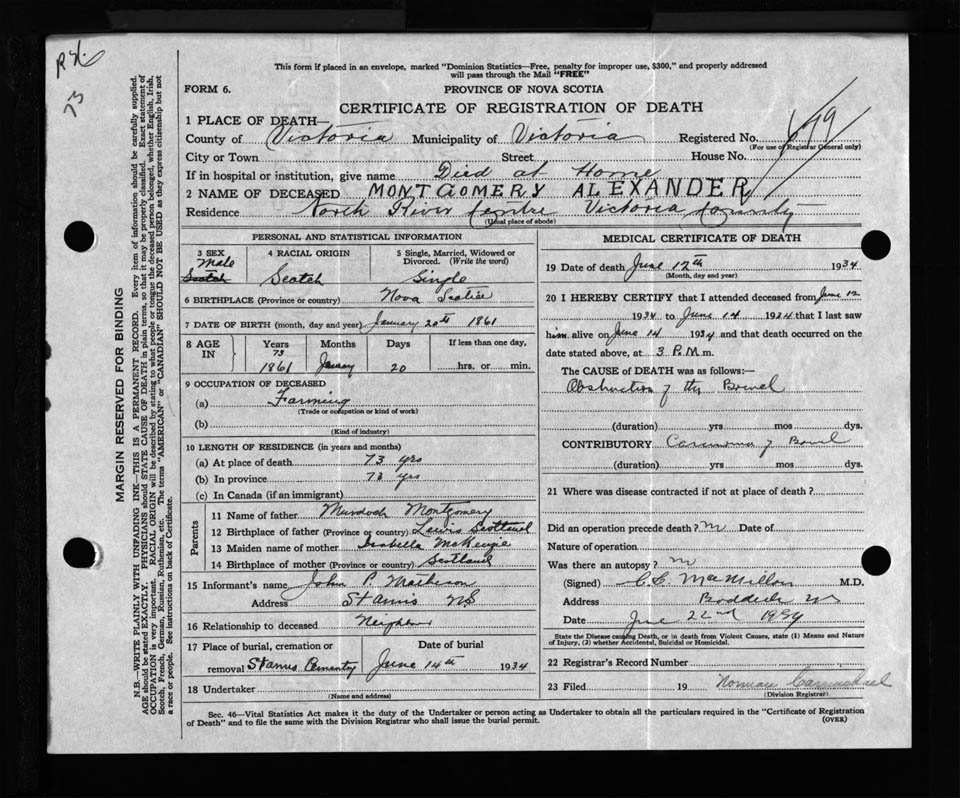 73
This form if placed in an envelope, marked "Dominion Statistics—Free, penalty for improper use, $300," and properly addressed
will pass through the Mail "FREE"
FORM 6.
PROVINCE OF NOVA SCOTIA
CERTIFICATE OF REGISTRATION OF DEATH
1 PLACE OF DEATH—
County of Victoria Municipality of Victoria Registered No. 699
(For use of Registrar General only)
City or Town Street House No.
If in hospital or institution, give name Died at Home
2 NAME OF DECEASED MONTGOMERY ALEXANDER
Residence North River Centre Victoria County
(Usual place of abode)
PERSONAL AND STATISTICAL INFORMATION
3 SEX Male Scotch
4 RACIAL ORIGIN Scotch
5 Single, Married, Widowed or Divorced. (Write the word) Single
6 BIRTHPLACE (Province or country) Nova Scotia
7 DATE OF BIRTH (month, day and year) January 20th 1861
8 AGE IN Years 73 1861 Months January Days 20 If less than one day, hrs. or min.
9 OCCUPATION OF DECEASED
(a) Farming
(Trade or occupation or kind of work)
(b)
(Kind of industry)
10 LENGTH OF RESIDENCE (in years and months)
(a) At place of death 73 yrs
(b) In province 73 yrs
(c) In Canada (if an immigrant)
Parents
11 Name of father Murdoch Montgomery
12 Birthplace of father (Province or country) Lewis Scotland
13 Maiden name of mother Isabella McKenzie
14 Birthplace of mother (Province or country) Scotland
15 Informant's name John P. Matheson
Address St Anns NS
16 Relationship to deceased Neighbor
17 Place of burial, cremation or removal St Anns Cementry Date of burial June 14th 1934
18 Undertaker
(Name and address)
MEDICAL CERTIFICATE OF DEATH
19 Date of death June 12th 1934
(Month, day and year)
20 I HEREBY CERTIFY that I attended deceased from June 12
1934 to June 14 1934 that I last saw
him alive on June 14 1934 and that death occurred on the
date stated above, at 3 P.M m.
The CAUSE of DEATH was as follows:—
Obstruction of the Bowel
(duration) yrs mos dys.
CONTRIBUTORY Carcinoma of Bowel
(duration) yrs mos dys.
21 Where was disease contracted if not at place of death?
Did an operation precede death? no Date of
Nature of operation
Was there an autopsy? no
(Signed) C. L. MacMillan M.D.
Address Baddeck NS
Date June 22nd 1934
State the Disease causing Death, or in death from Violent Causes, state (1) Means and Nature
of Injury, (2) whether Accidental, Suicidal or Homicidal.
22 Registrar's Record Number
23 Filed 19 Norman Carmichael
(Division Registrar)
Sec. 46—Vital Statistics Act makes it the duty of the Undertaker or person acting as Undertaker to obtain all the particulars required in the "Certificate of Registration
of Death" and to file the same with the Division Registrar who shall issue the burial permit.
(OVER)
MARGIN RESERVED FOR BINDING
N.B.—WRITE PLAINLY WITH UNFADING INK—THIS IS A PERMANENT RECORD. Every item of information should be carefully supplied.
AGE should be stated EXACTLY. PHYSICIANS should STATE CAUSE OF DEATH in plain terms, so that it may be properly classified. Exact statement of
OCCUPATION is very important. RACIAL ORIGIN will be described by stating to what people or tongue the deceased person belonged, whether English, Irish,
Scotch, French, German, Russian, Ruthenian, etc. The terms "AMERICAN" or "CANADIAN" SHOULD NOT BE USED as they express citizenship but not
a race or people. See instructions on back of Certificate.